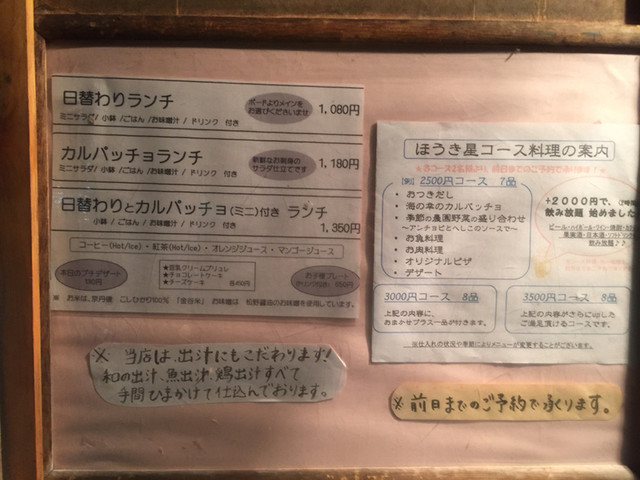 日替わりランチ
ボードよりメインを
お選びくださいませ
1,080円
ミニサラダ/ 小鉢 /ごはん /お味噌汁 / ドリンク 付き
カルパッチョランチ
新鮮なお刺身の
サラダ仕立てです
1,180円
ミニサラダ/ 小鉢 /ごはん /お味噌汁 / ドリンク 付き
日替わりとカルパッチョ(ミニ)付き ランチ
小鉢 /ごはん /お味噌汁 / ドリンク 付き
1,350円
コーヒー(Hot/Ice)・紅茶(Hot/Ice)・オレンジジュース・マンゴージュース
本日のプチデザート
100円
★豆乳クリームブリュレ
★チョコレートケーキ
★チーズケーキ 各450円
お子様プレート
ドリンク付き
※ お米は、京丹後 こしひかり100%「金谷米」 お味噌は 松野醤油のお味噌を使用しています。
※ 当店は、出汁にもこだわります!
和の出汁、魚出汁、鶏出汁すべて
手間ひまかけて仕込んでおります。
ほうき星コース料理の案内
【例】2500円コース 7品
• おつきだし
• 海の幸のカルパッチョ
• 季節の農園野菜の盛り合わせ
～アンチョビとへしこのソースで～
• お魚料理
• お肉料理
• オリジナルピザ
• デザート
+2000円で、
飲み放題 始めました
3000円コース 8品
上記の内容に、
おまかせプラス一品が付きます。
3500円コース 8品
上記の内容がさらに
ご満足頂けるコースです。
※仕入れの状況や季節によりメニューが変更することがございます。
※ 前日までのご予約で承ります。